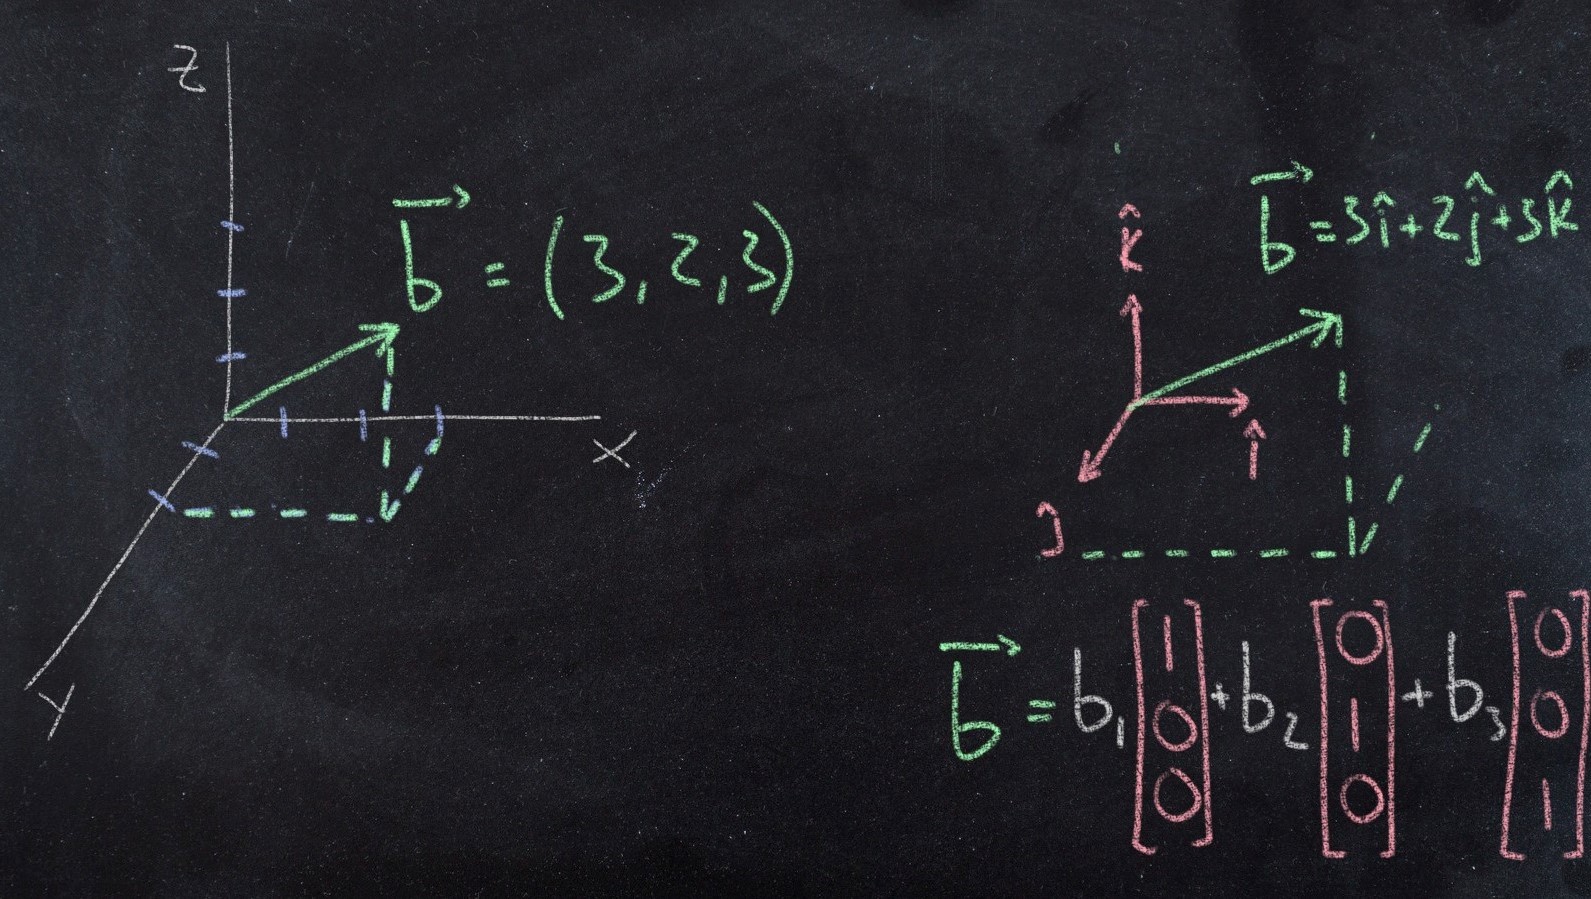 Z
b = (3, 2, 3)
X
Y
k̂
b = 3î + 2ĵ + 3k̂
î
ĵ
b = b₁ [1 0 0] + b₂ [0 1 0] + b₃ [0 0 1]